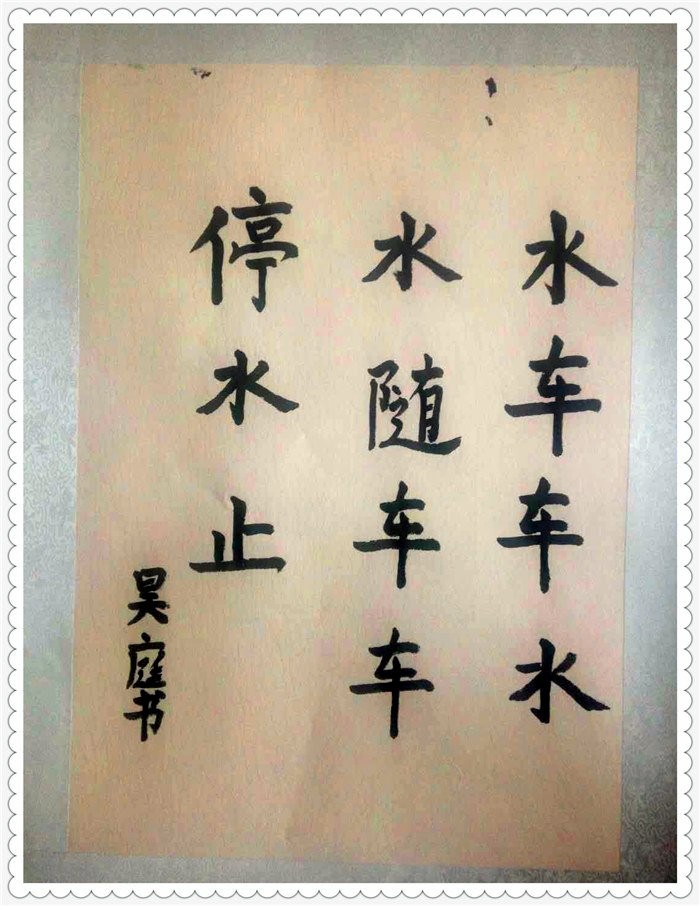 水车车水
水随车车
停水止
昊庭书